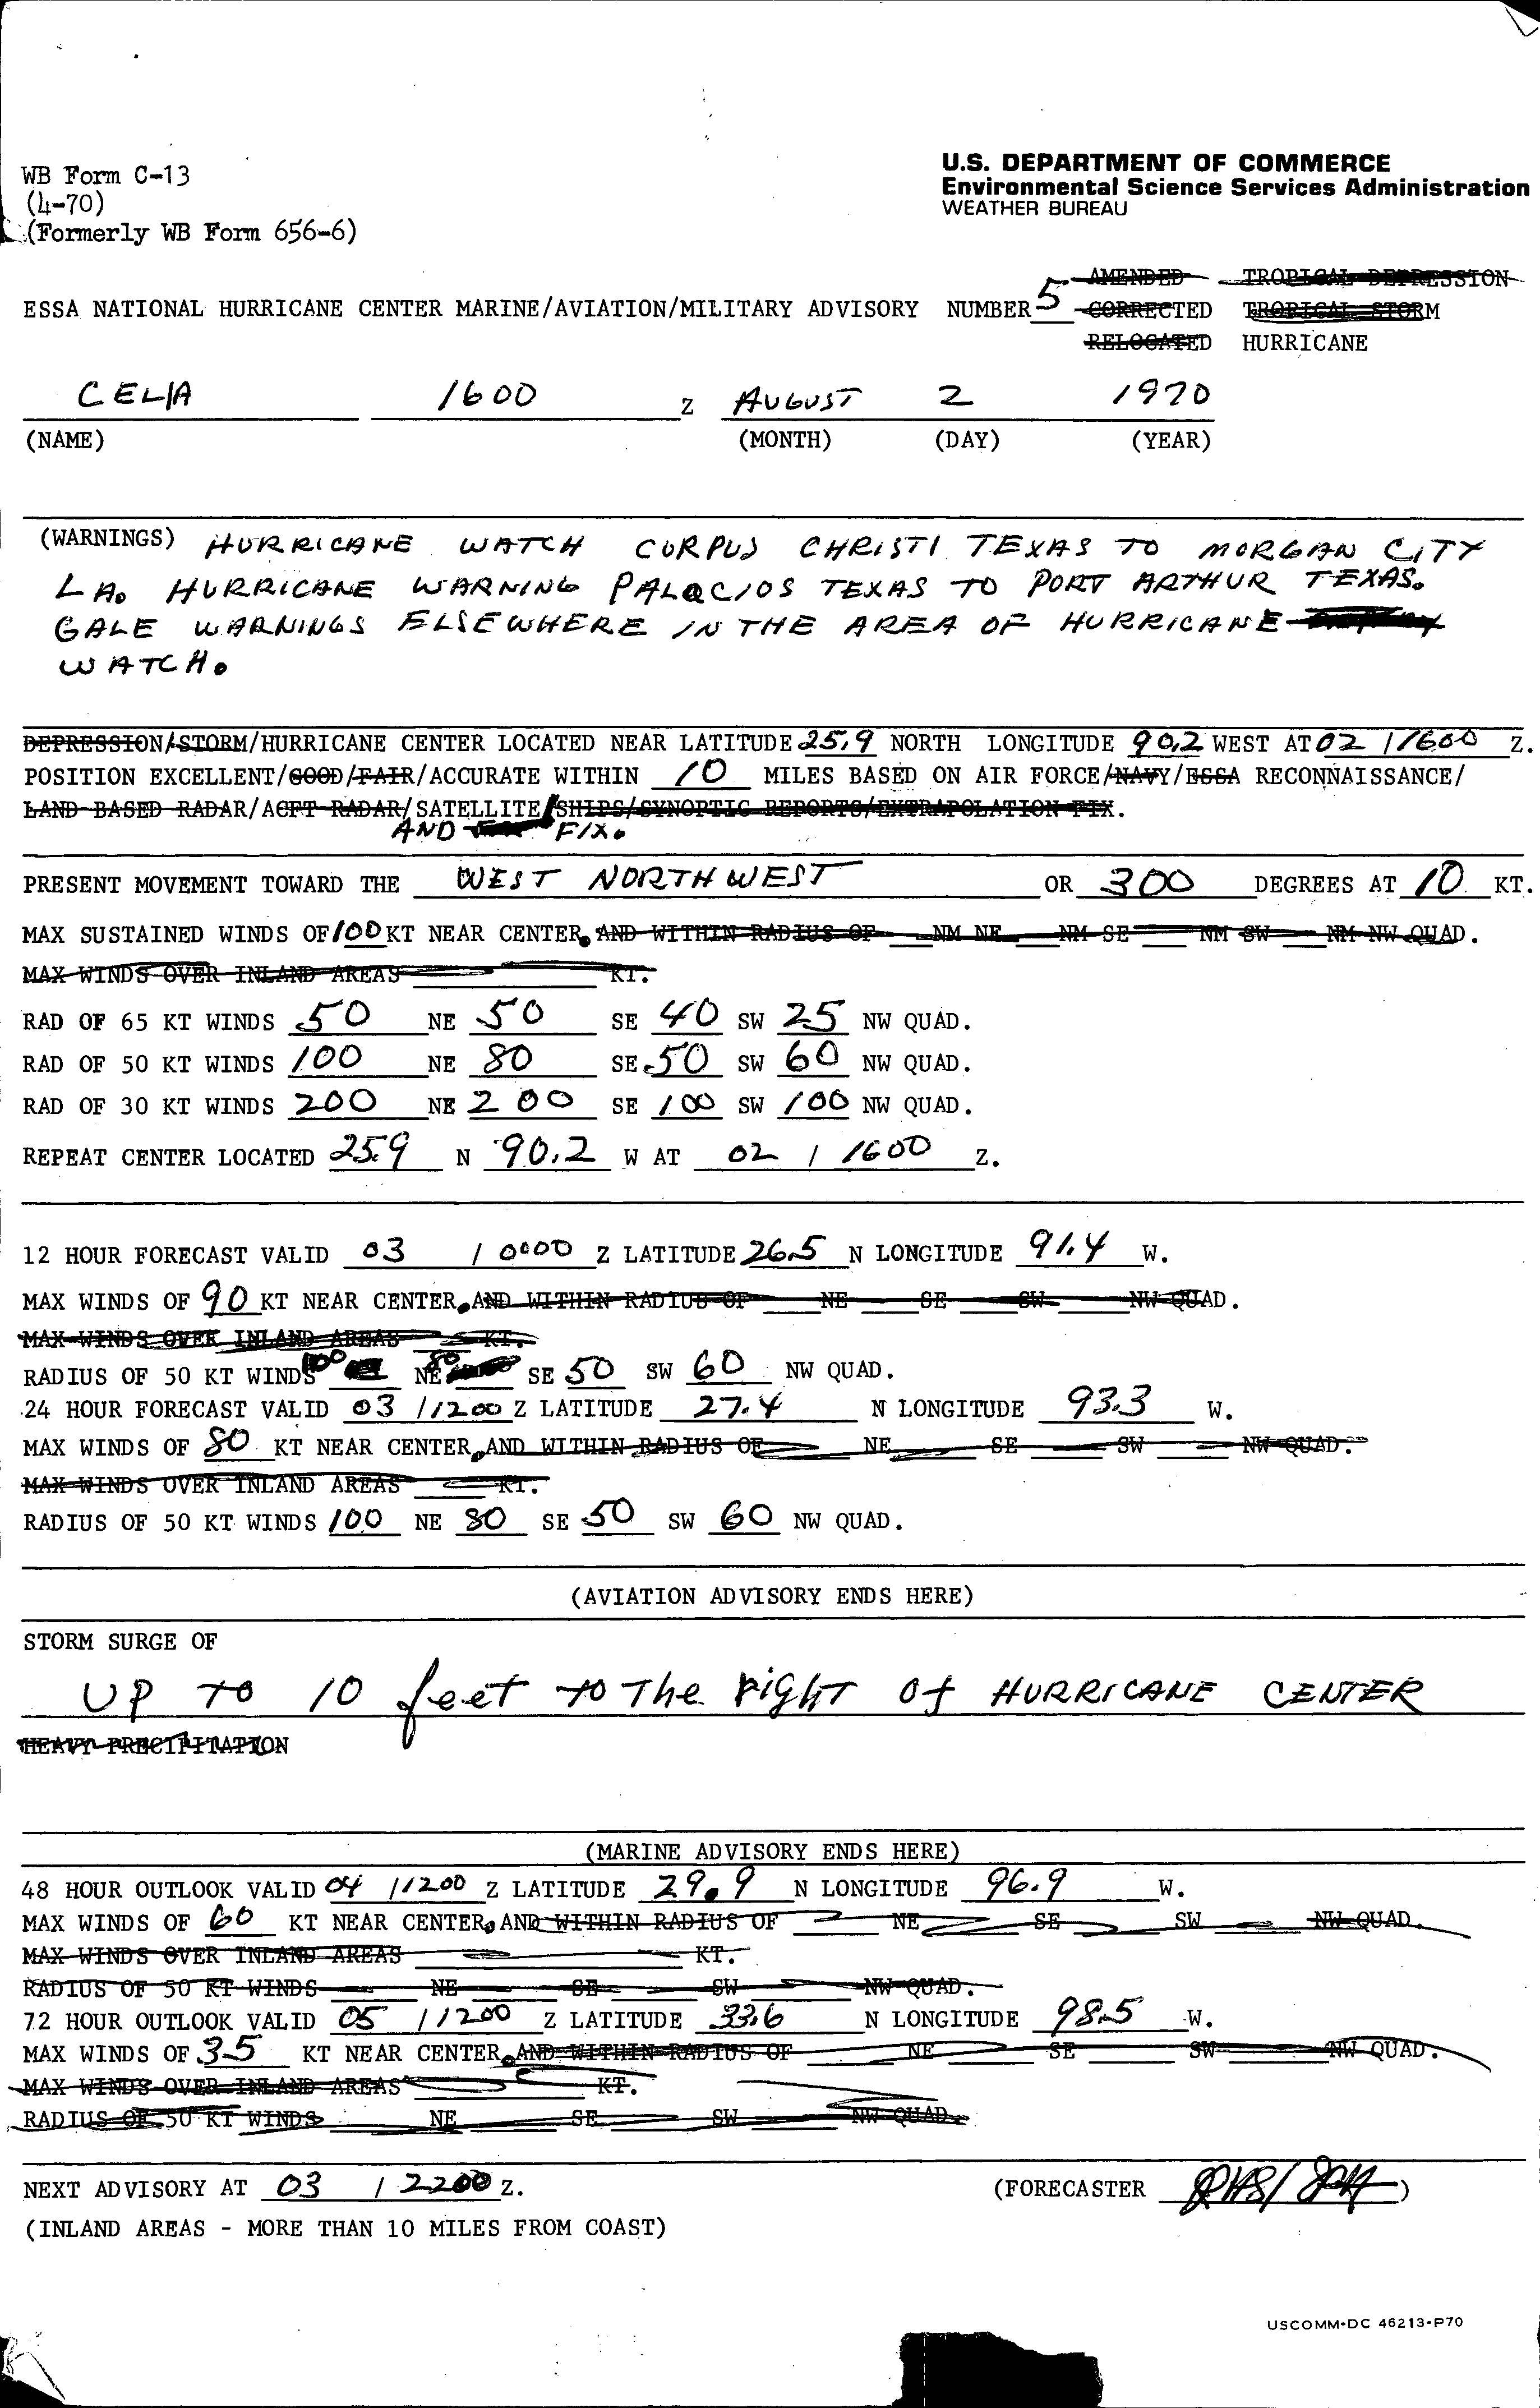 U.S. DEPARTMENT OF COMMERCE
Environmental Science Services Administration
WEATHER BUREAU
WB Form C-13
(4-70)
(Formerly WB Form 656-6)
AMENDED TROPICAL DEPRESSION
ESSA NATIONAL HURRICANE CENTER MARINE/AVIATION/MILITARY ADVISORY NUMBER 5 CORRECTED TROPICAL STORM
RELOCATED HURRICANE
CELIA 1600 Z AUGUST 2 1970
(NAME) (MONTH) (DAY) (YEAR)
(WARNINGS) HURRICANE WATCH CORPUS CHRISTI TEXAS TO MORGAN CITY
LA. HURRICANE WARNING PALACIOS TEXAS TO PORT ARTHUR TEXAS.
GALE WARNINGS ELSEWHERE IN THE AREA OF HURRICANE
WATCH.
DEPRESSION/STORM/HURRICANE CENTER LOCATED NEAR LATITUDE 25.9 NORTH LONGITUDE 90.2 WEST AT 02 / 1600 Z.
POSITION EXCELLENT/GOOD/FAIR/ACCURATE WITHIN 10 MILES BASED ON AIR FORCE/NAVY/ESSA RECONNAISSANCE/
LAND BASED RADAR/ACFT RADAR/SATELLITE/SHIPS/SYNOPTIC REPORTS/EXTRAPOLATION FIX.
AND FIX.
PRESENT MOVEMENT TOWARD THE WEST NORTHWEST OR 300 DEGREES AT 10 KT.
MAX SUSTAINED WINDS OF 100 KT NEAR CENTER. AND WITHIN RADIUS OF NM NE NM SE NM SW NM NW QUAD.
MAX WINDS OVER INLAND AREAS KT.
RAD OF 65 KT WINDS 50 NE 50 SE 40 SW 25 NW QUAD.
RAD OF 50 KT WINDS 100 NE 80 SE 50 SW 60 NW QUAD.
RAD OF 30 KT WINDS 200 NE 200 SE 100 SW 100 NW QUAD.
REPEAT CENTER LOCATED 25.9 N 90.2 W AT 02 / 1600 Z.
12 HOUR FORECAST VALID 03 / 0000 Z LATITUDE 26.5 N LONGITUDE 91.4 W.
MAX WINDS OF 90 KT NEAR CENTER. AND WITHIN RADIUS OF NE SE SW NW QUAD.
MAX WINDS OVER INLAND AREAS KT.
RADIUS OF 50 KT WINDS 100 NE 80 SE 50 SW 60 NW QUAD.
24 HOUR FORECAST VALID 03 / 1200 Z LATITUDE 27.4 N LONGITUDE 93.3 W.
MAX WINDS OF 80 KT NEAR CENTER. AND WITHIN RADIUS OF NE SE SW NW QUAD.
MAX WINDS OVER INLAND AREAS KT.
RADIUS OF 50 KT WINDS 100 NE 80 SE 50 SW 60 NW QUAD.
(AVIATION ADVISORY ENDS HERE)
STORM SURGE OF
UP TO 10 feet to The right Of HURRICANE CENTER
HEAVY PRECIPITATION
(MARINE ADVISORY ENDS HERE)
48 HOUR OUTLOOK VALID 04 / 1200 Z LATITUDE 29.9 N LONGITUDE 96.9 W.
MAX WINDS OF 60 KT NEAR CENTER. AND WITHIN RADIUS OF NE SE SW NW QUAD.
MAX WINDS OVER INLAND AREAS KT.
RADIUS OF 50 KT WINDS NE SE SW NW QUAD.
72 HOUR OUTLOOK VALID 05 / 1200 Z LATITUDE 33.6 N LONGITUDE 98.5 W.
MAX WINDS OF 35 KT NEAR CENTER. AND WITHIN RADIUS OF NE SE SW NW QUAD.
MAX WINDS OVER INLAND AREAS KT.
RADIUS OF 50 KT WINDS NE SE SW NW QUAD.
NEXT ADVISORY AT 03 / 2200 Z. (FORECASTER )
(INLAND AREAS - MORE THAN 10 MILES FROM COAST)
USCOMM-DC 46213-P70